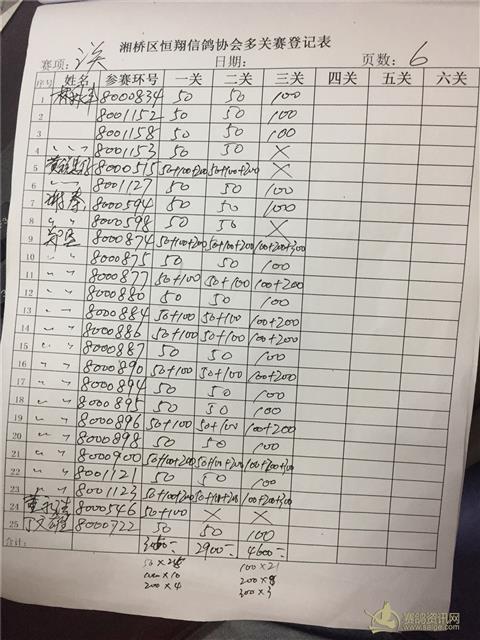 湘桥区恒翔信鸽协会多关赛登记表
赛项: 日期: 页数: 6
序号 姓名 参赛环号 一关 二关 三关 四关 五关 六关
1 8000834 50 50 100
2 8001152 50 50 100
3 8001158 50 50 100
4 〃 8001153 50 50 ×
5 8000515 50+100+200 50+100+200 ×
6 〃 8001127 50 50 100
7 8000594 50 50 100
8 〃 8000598 50 50 ×
9 8000874 50+100+200 50+100+200 100+200+300
10 〃 8000875 50 50 100
11 〃 8000877 50+100 50+100 100+200
12 〃 8000880 50 50 100
13 〃 8000884 50+100 50+100 100+200
14 〃 8000886 50+100 50+100 100+200
15 〃 8000887 50 50 100
16 〃 8000890 50+100 50+100 100+200
17 〃 8000894 50 50 100
18 〃 8000895 50 50 100
19 〃 8000896 50+100 50+100 100+200
20 〃 8000898 50 50 100
21 〃 8000900 50+100+200 50+100+200 100+200+300
22 〃 8001121 50 50 100
23 〃 8001123 50+100+200 50+100+200 100+200+300
24 8000546 50+100 × ×
25 8000722 50 50 100
合计: 2900- 4600-
100×21
200×8
200×4 300×3
赛鸽资讯网
www.saige.com